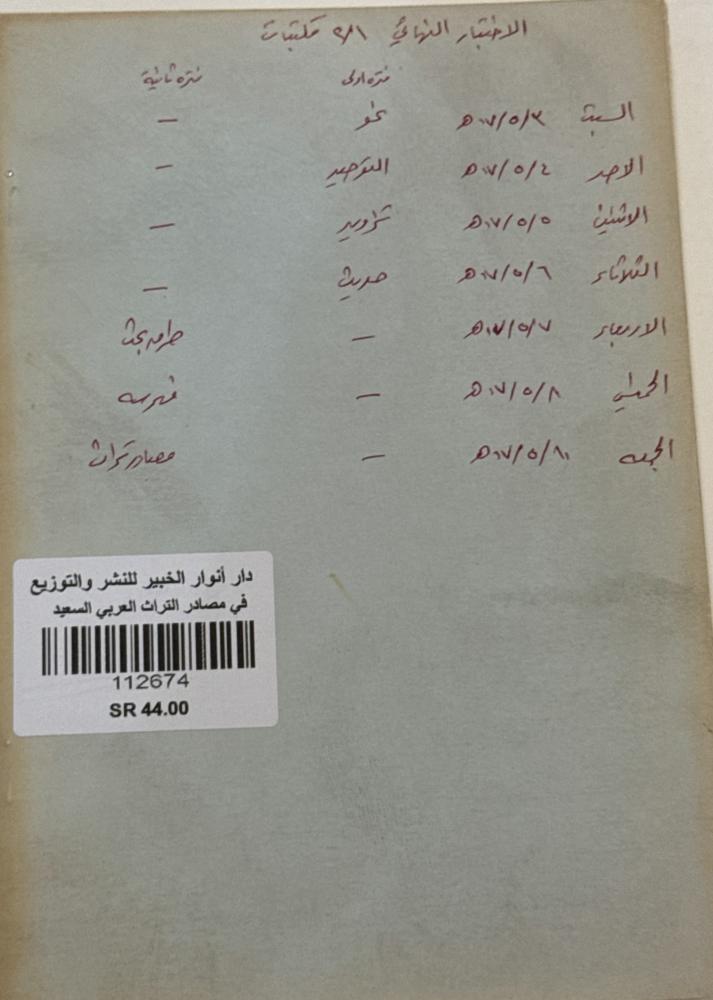 الاختبار النهائي ٢/١ مكتبات
فتره اولى فتره ثانية
السبت ٣/٥/٠٧ هـ نحو —
الاحد ٤/٥/٠٧ هـ التوحيد —
الاثنين ٥/٥/٠٧ هـ —
الثلاثاء ٦/٥/٠٧ هـ حديث —
الاربعاء ٧/٥/٠٧ هـ — طرق بحث
الخميس ٨/٥/٠٧ هـ — فهرسه
الجمعه /٥/٠٧ هـ — مصادر تراث
دار أنوار الخبير للنشر والتوزيع
في مصادر التراث العربي السعيد
112674
SR 44.00